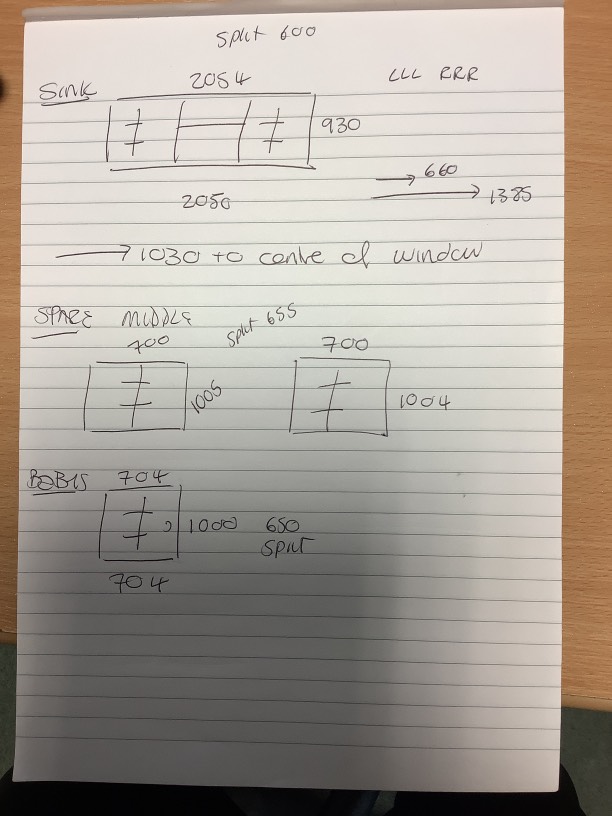 Split 600
Sink 2054 LLL RRR
930
660
2050 1385
1030 to centre of window
SPARE MIDDLE split 655
700 700
1005 1004
704
1000 650
SPLIT
704